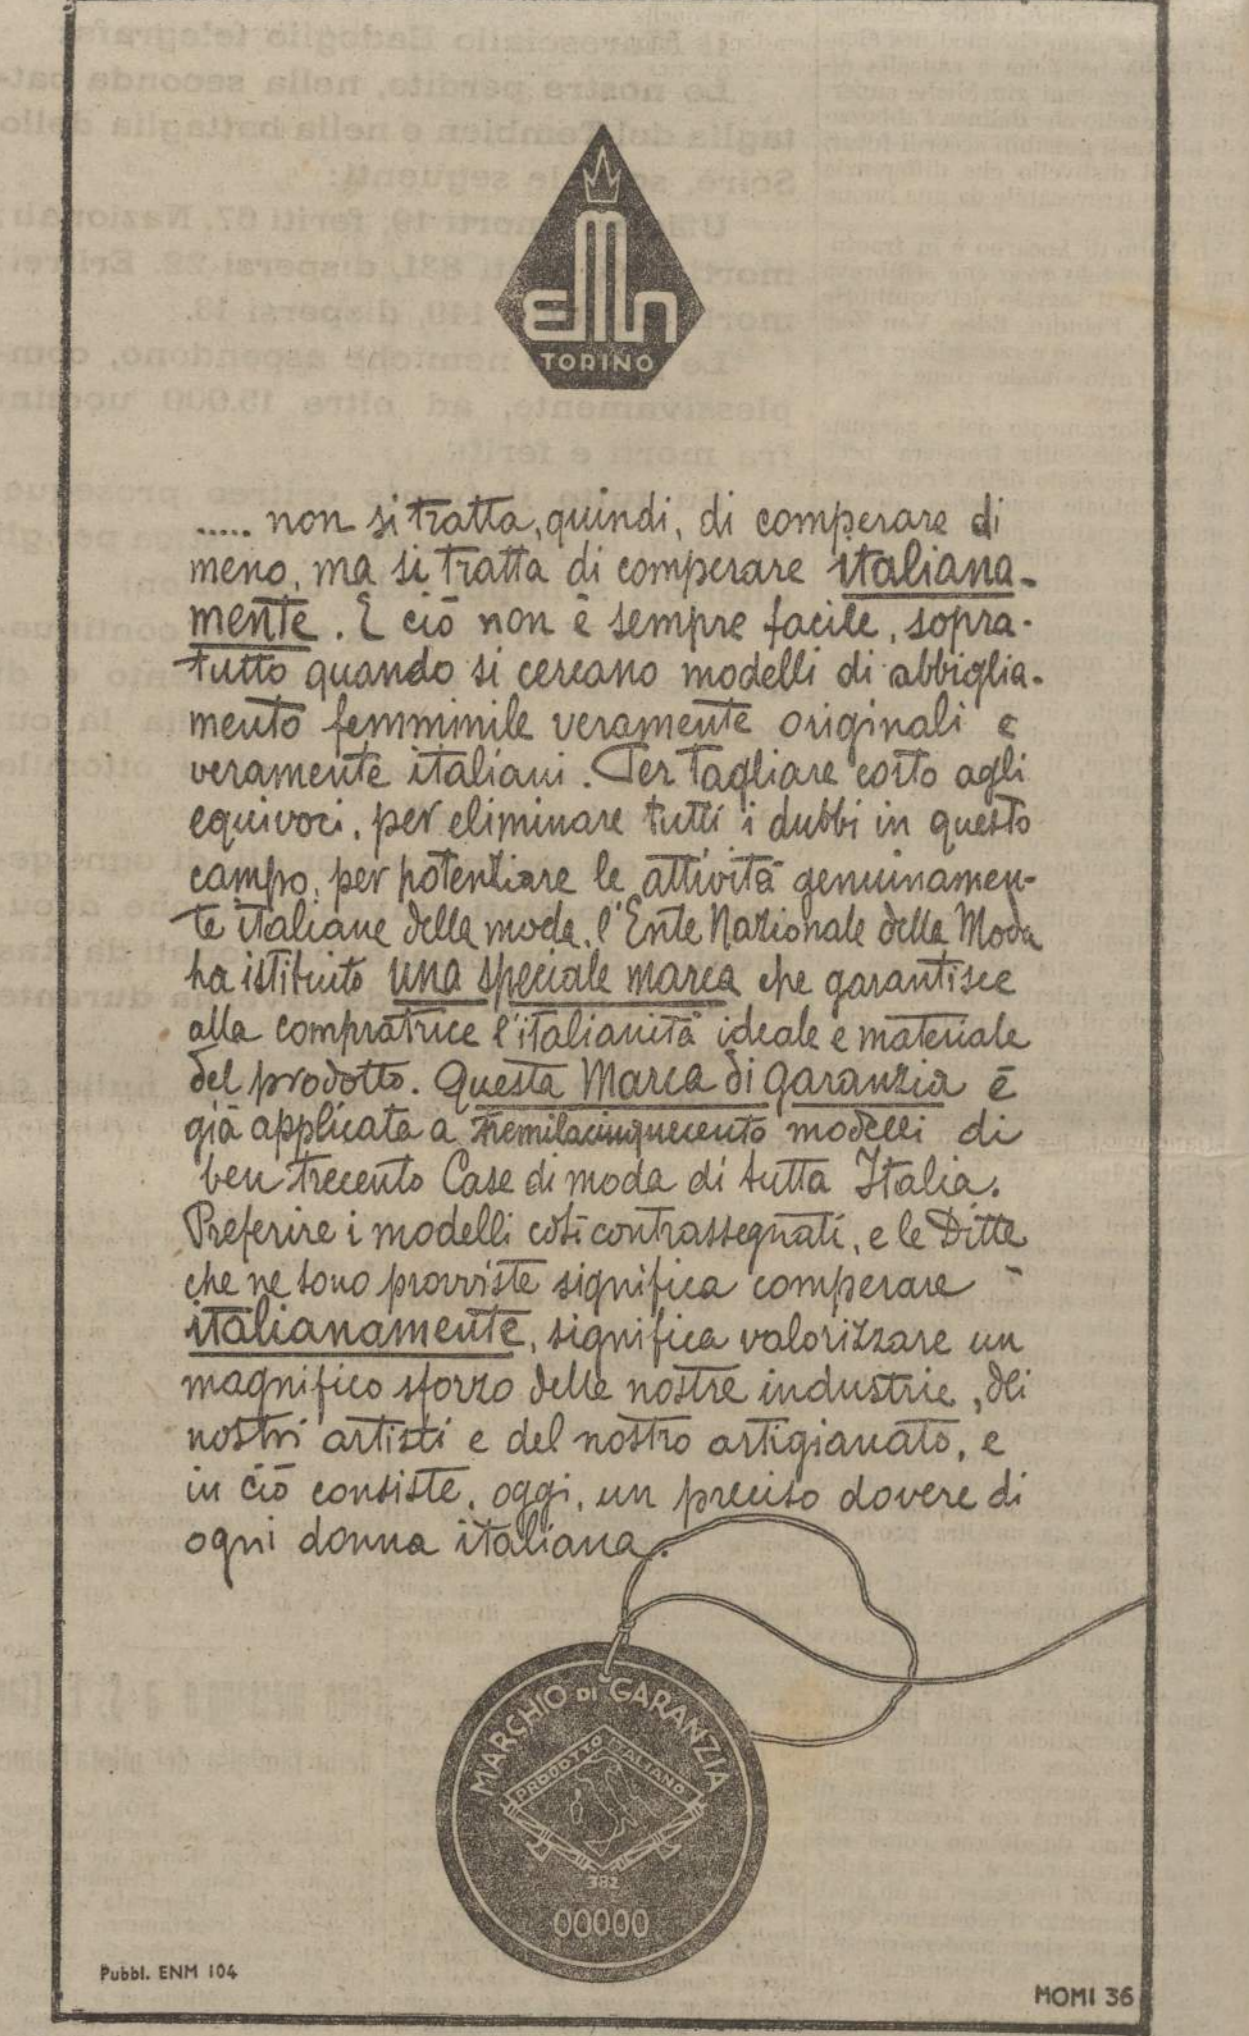 ENM
TORINO
..... non si tratta, quindi, di comperare di
meno, ma si tratta di comperare italiana-
mente. E ciò non è sempre facile, sopra-
tutto quando si cercano modelli di abbiglia-
mento femminile veramente originali e
veramente italiani. Per tagliare corto agli
equivoci, per eliminare tutti i dubbi in questo
campo, per potenziare le attività genuinamen-
te italiane della moda, l'Ente Nazionale della Moda
ha istituito una speciale marca che garantisce
alla compratrice l'italianità ideale e materiale
del prodotto. Questa Marca di garanzia è
già applicata a tremilacinquecento modelli di
ben trecento Case di moda di tutta Italia.
Preferire i modelli così contrassegnati, e le Ditte
che ne sono provviste significa comperare
italianamente, significa valorizzare un
magnifico sforzo delle nostre industrie, dei
nostri artisti e del nostro artigianato, e
in ciò consiste, oggi, un preciso dovere di
ogni donna italiana.
MARCHIO DI GARANZIA
PRODOTTO ITALIANO
382
00000
Pubbl. ENM 104
MOMI 36